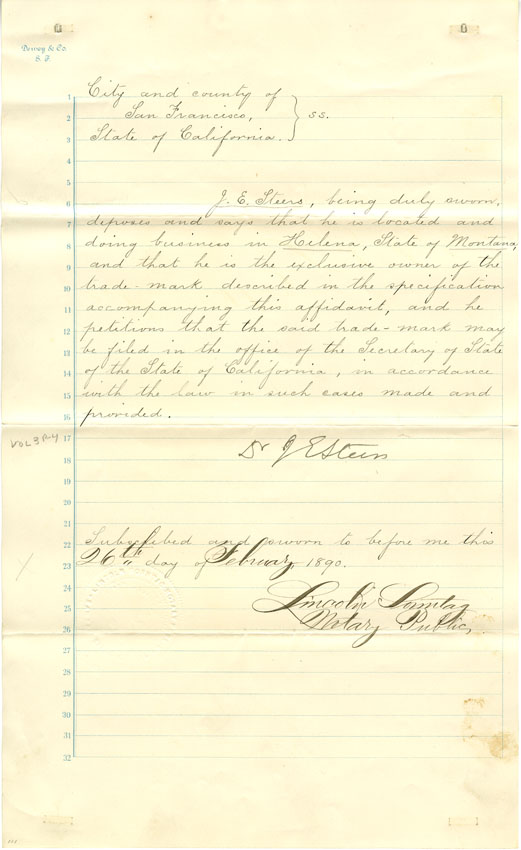 Dewey & Co.
S. F.
1 City and county of
2 San Francisco, } ss.
3 State of California.
4
5
6 J. E. Steers, being duly sworn,
7 deposes and says that he is located and
8 doing business in Helena, State of Montana,
9 and that he is the exclusive owner of the
10 trade-mark described in the specification
11 accompanying this affidavit, and he
12 petitions that the said trade-mark may
13 be filed in the office of the Secretary of State
14 of the State of California, in accordance
15 with the law in such cases made and
16 provided.
17
VOL 3 P-4
18 Dr J E Steers
19
20
21
22 Subscribed and sworn to before me this
23 26th day of February 1890.
24
25 Lincoln Sonntag
26 Notary Public,
27
28
29
30
31
32